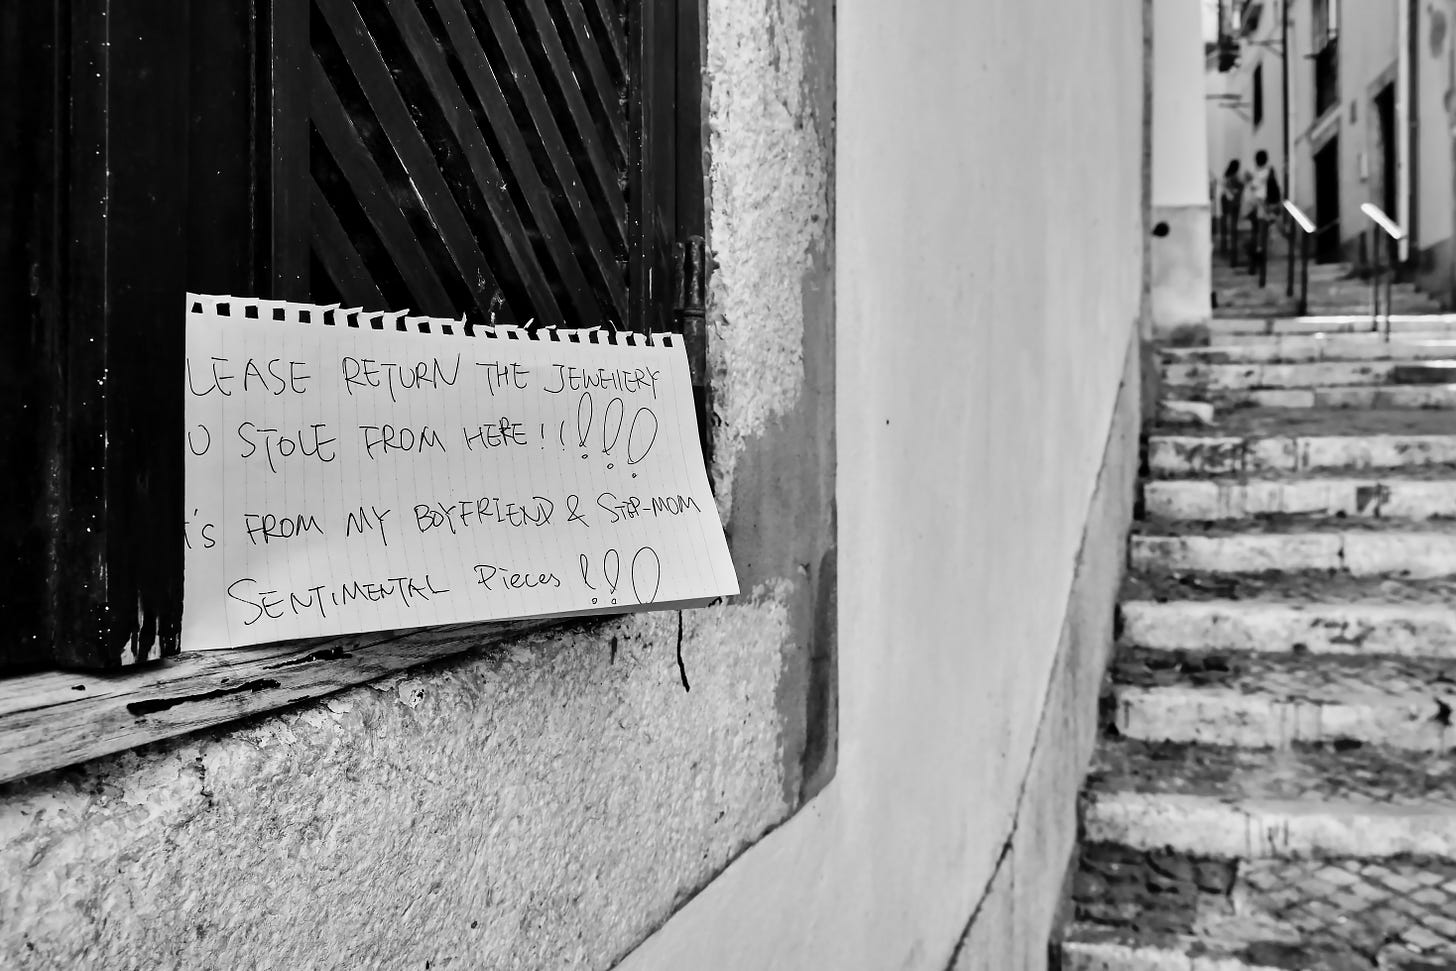 LEASE RETURN THE JEWELLERY
U STOLE FROM HERE!!!!!
T'S FROM MY BOYFRIEND & STEP-MOM
SENTIMENTAL Pieces !!!